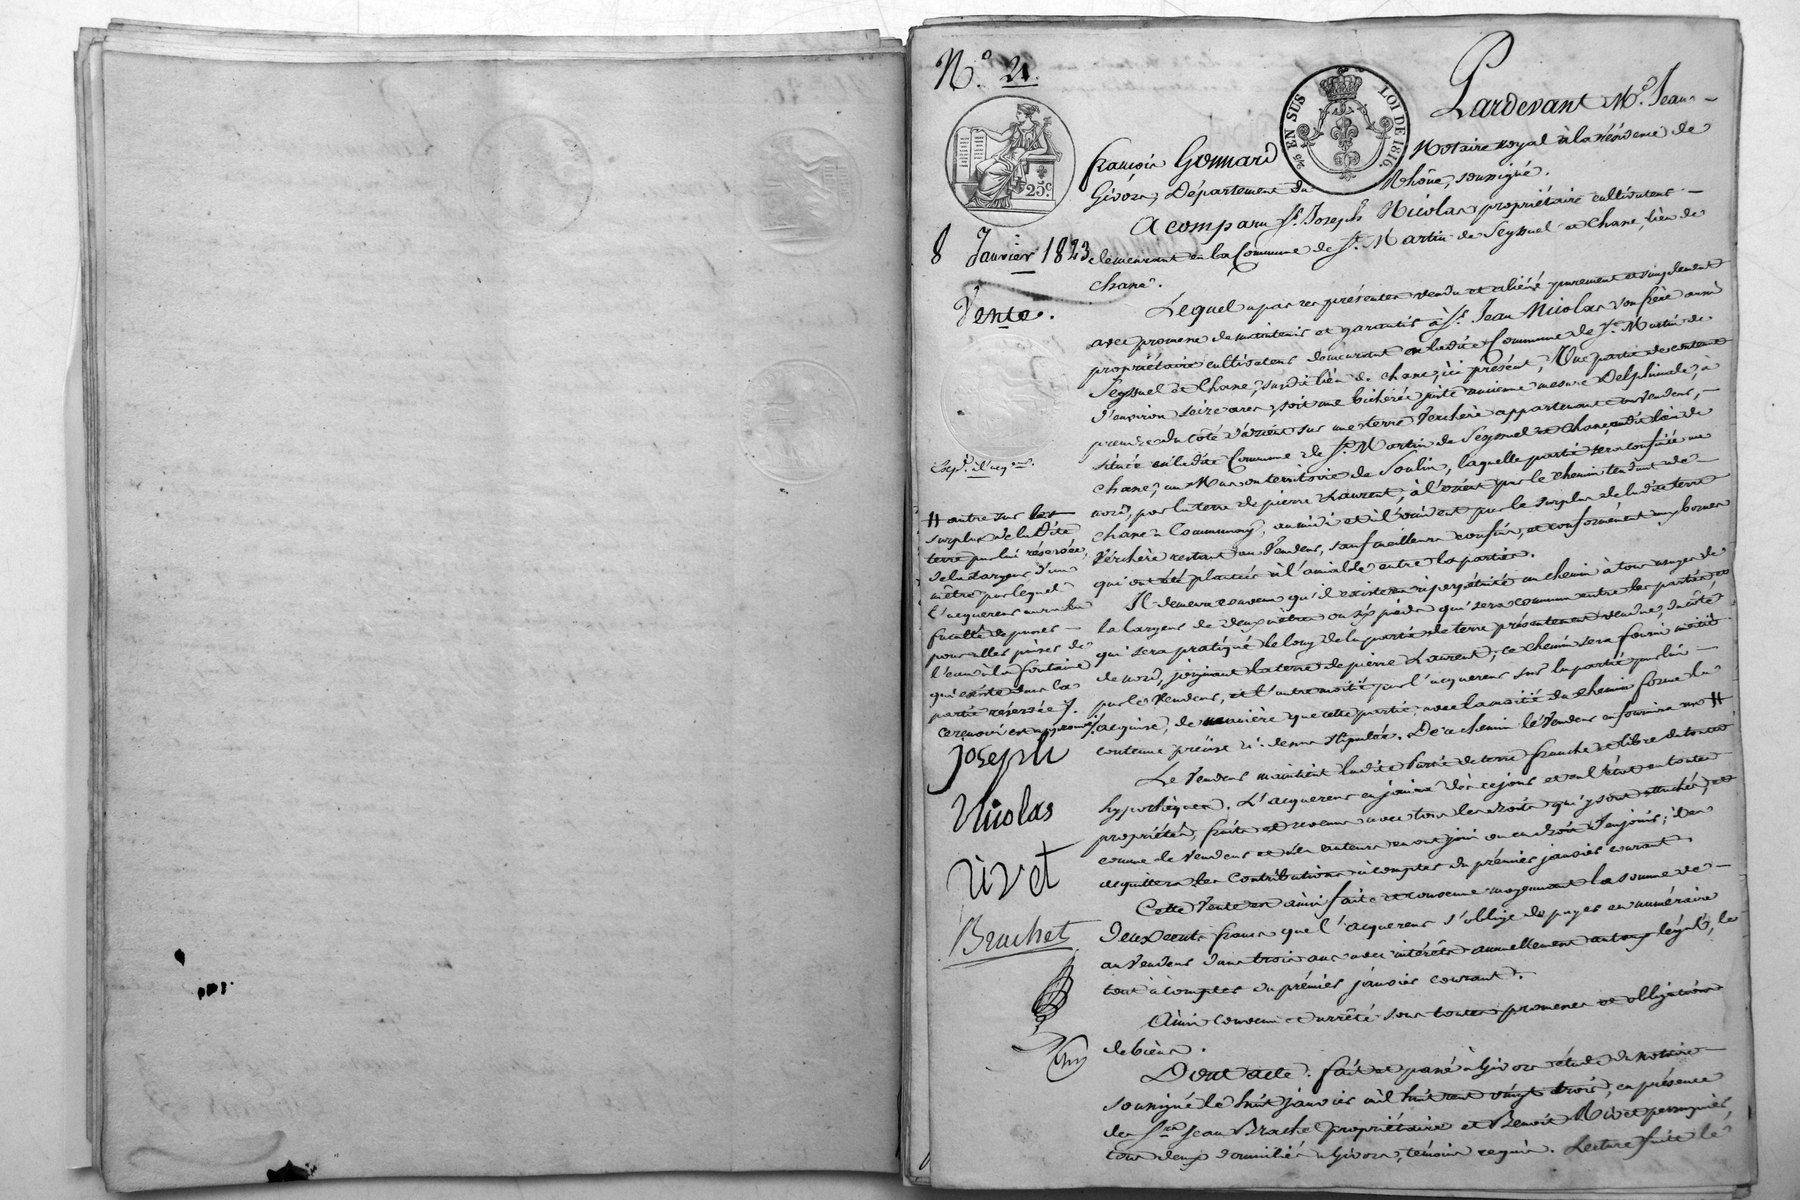 N.° 21.
EN SUS
LOI DE 1816
25 c.
8 Janvier 1823
Vente.
Pardevant M.e Jean-
françois Gonnard Notaire royal à la résidence de
Givors, Département du Rhône, soussigné.
A comparu S.r Joseph Nicolas propriétaire cultivateur
demeurant en la Commune de S.t Martin de Seyssuel et Chane, lieu de
chane.
Lequel a par ces présentes vendu et aliéné purement et simplement
avec promesse de maintenir et garantir à S.r Jean Nicolas son frère aussi
propriétaire cultivateur demeurant en ladite Commune de S.t Martin de
Seyssuel et Chane, susdit lieu de chane, ici présent, Une partie de contenue
d'environ seize ares, soit une bicherée juste ancienne mesure Delphinale, à
prendre du côté d'orient sur une terre Verchère appartenant au vendeur,
située en ladite Commune de S.t Martin de Seyssuel et Chane, susdit lieu de
chane, au Mas ou territoire de Soulin, laquelle partie sera confinée au
nord, par la terre de pierre Laurent, à l'orient par le chemin tendant de
chane à Communay, au midi et à l'occident par le surplus de ladite terre
Verchère restant au Vendeur, sauf meilleurs confins, et conformément aux bornes
qui ont été plantées à l'amiable entre les parties.
Il demeure convenu qu'il existera à perpétuité un chemin à tous usages de
la largeur de deux mètres ou six pieds qui sera commun entre les parties, et
qui sera pratiqué le long de la partie de terre présentement vendue, du côté
de nord, joignant la terre de pierre Laurent; ce chemin sera fourni moitié
par le Vendeur, et l'autre moitié par l'acquereur sur la partie par lui
acquise, de manière que cette partie avec la moitié du chemin forme la
contenue précise ci-dessus stipulée. De ce chemin le Vendeur en fournira un #
# autre sur le
surplus de la dite
terre par lui réservée,
de la largeur d'un
mètre par lequel
l'acquereur aura la
faculté de passer
pour aller puiser de
l'eau à la fontaine
qui existe dans la
partie réservée.
ce renvoi est approuvé.
joseph
Nicolas
rivet
Brachet
Le Vendeur maintient ladite Partie de terre franche et libre de toutes
hypothèques. L'acquereur en jouira dès ce jour et en l'état en toutes
propriétés, fruits et revenus avec tous les droits qui y sont attachés, et
comme le Vendeur et ses auteurs en ont joui ou eu droit d'en jouir; il en
acquittera les contributions à compter du premier janvier courant.
Cette Vente est ainsi faite et convenue moyennant la somme de
deux cents francs que l'acquereur s'oblige de payer en numéraire
au Vendeur dans trois ans avec intérêts annuellement au taux légal, le
tout à compter du prémier janvier courant.
Ainsi convenu et arrêté sous toutes promesses et obligations
de biens.
Dont acte. fait et passé à Givors étude du notaire
soussigné le huit janvier mil huit cent vingt trois, en présence
des S.rs Jean Brachet propriétaire et Benoit Rivet perruquier,
tous deux domiciliés à Givors, témoins requis. Lecture faite le